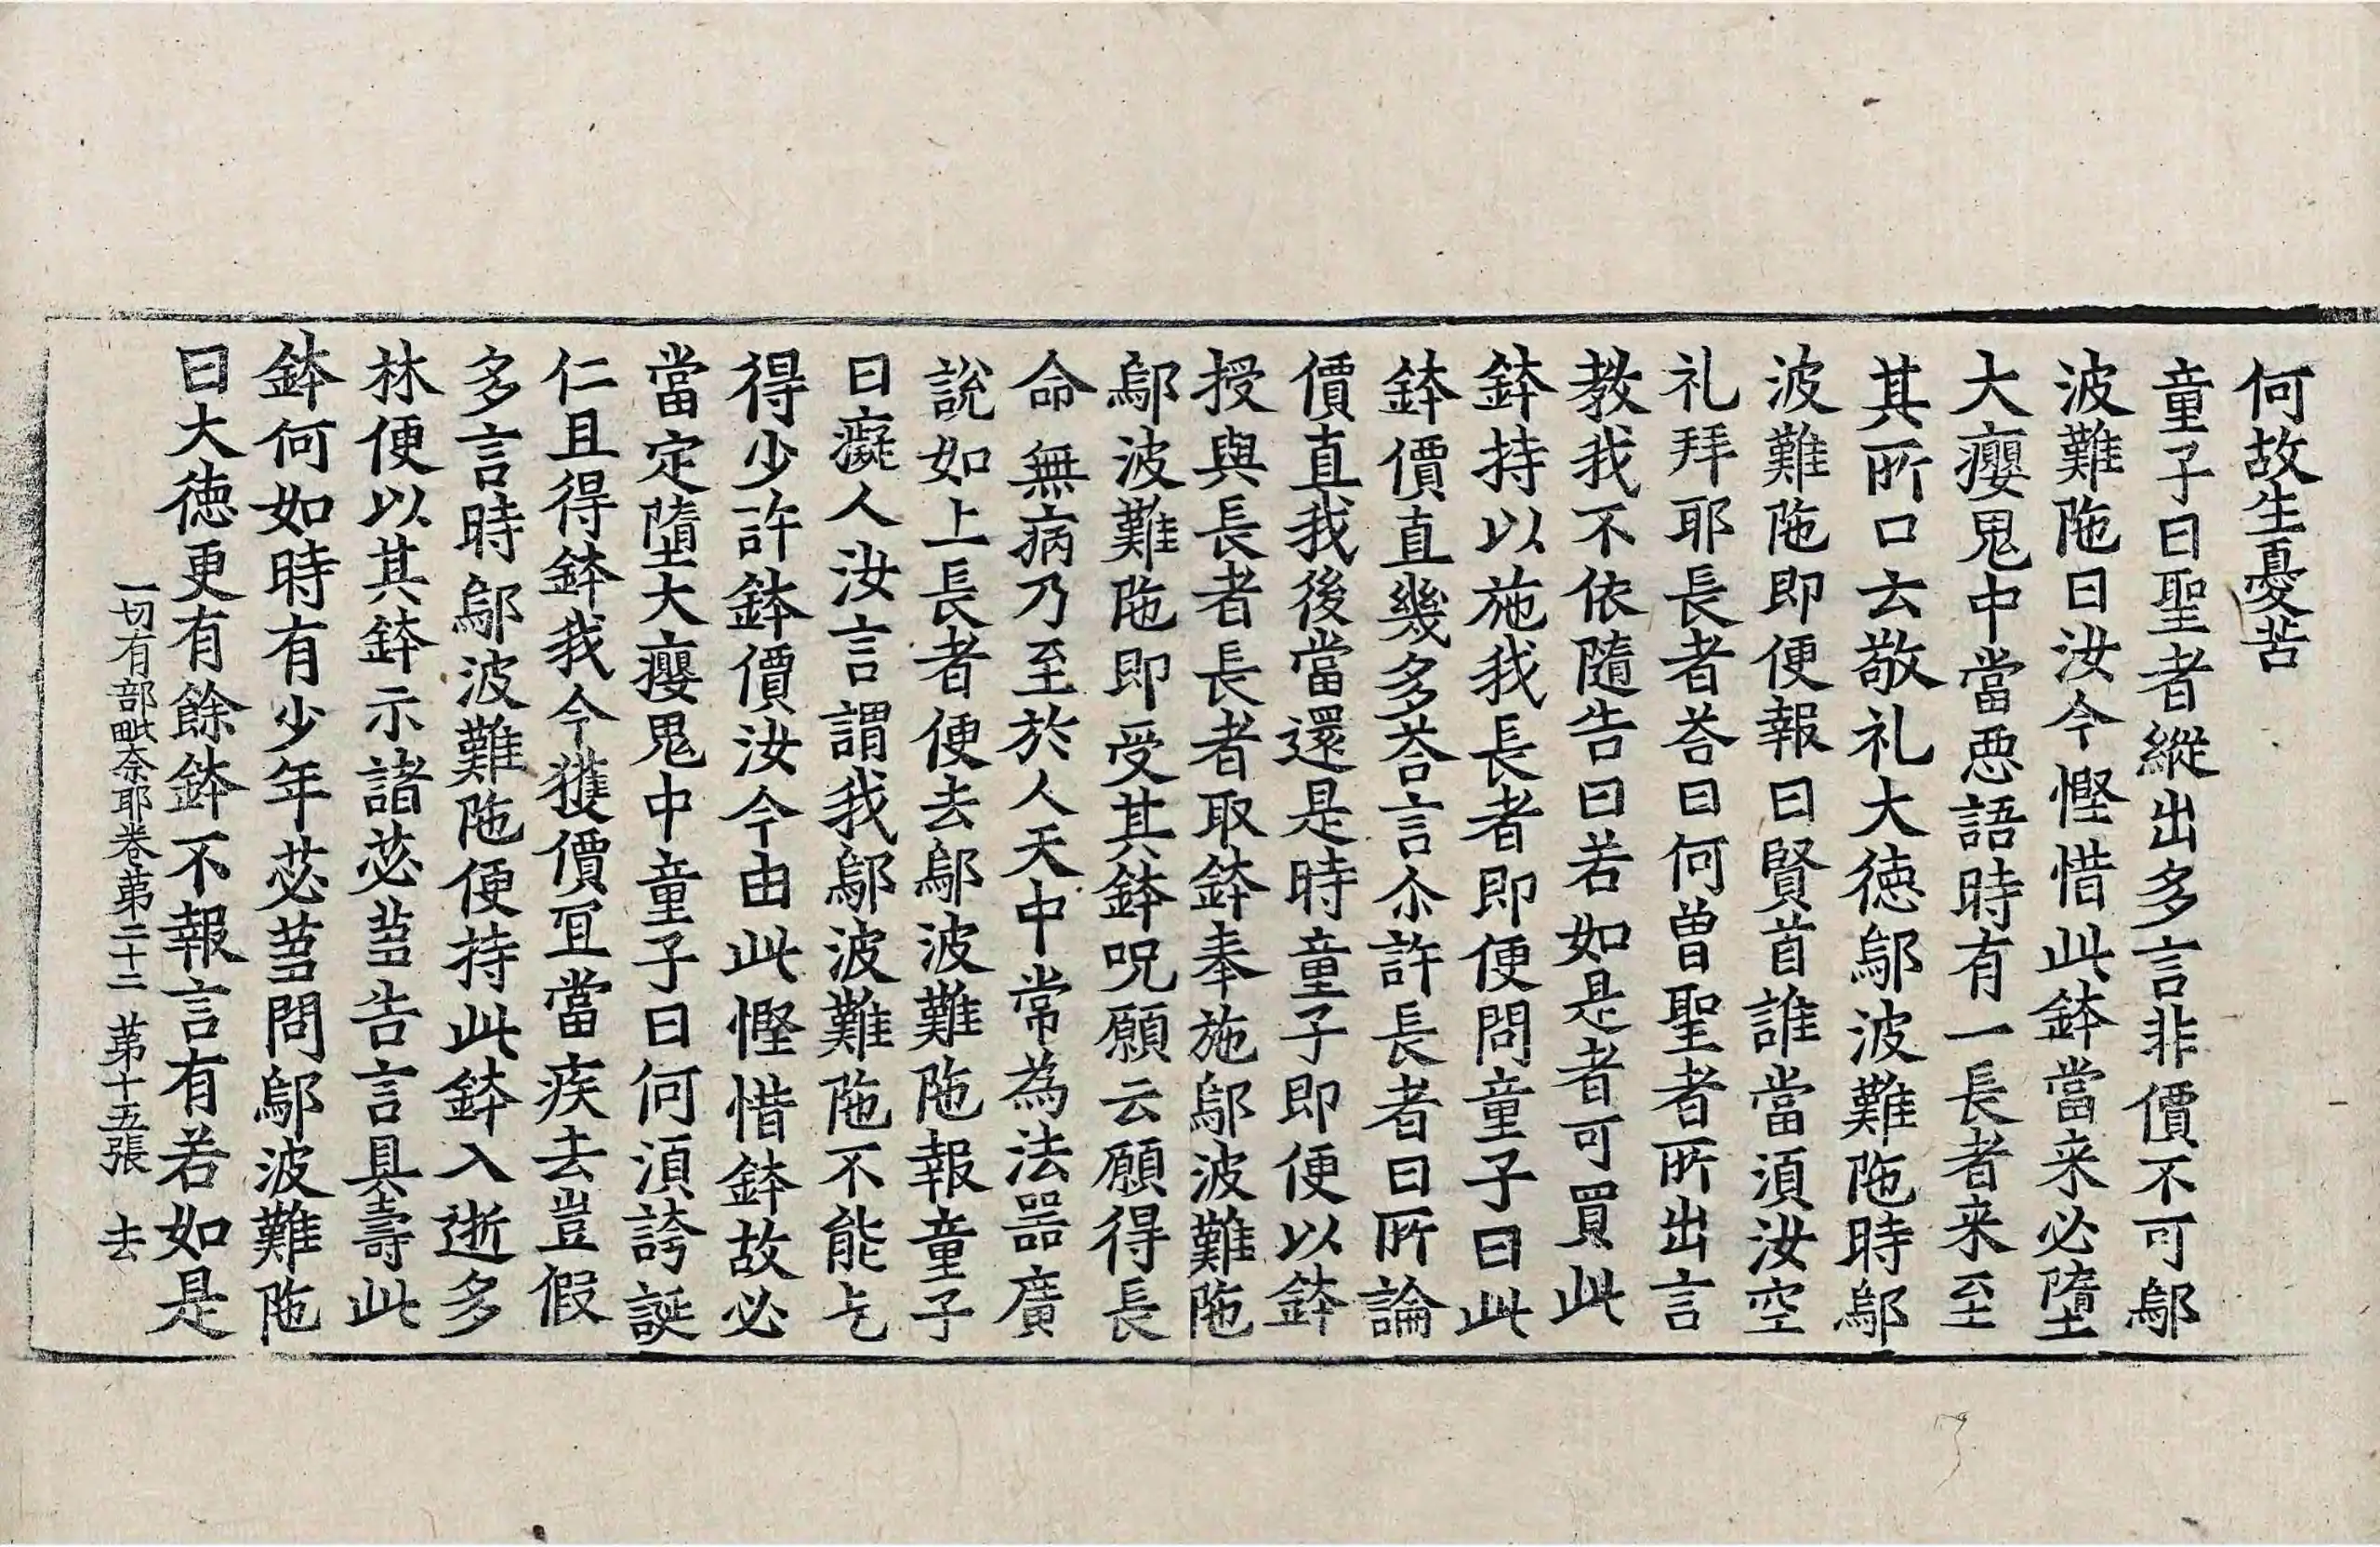 何故生憂苦
童子曰聖者縱出多言非價不可鄔
波難陁曰汝今慳惜此鉢當来必墮
大癭鬼中當惡語時有一長者来至
其所口云敬礼大徳鄔波難陁時鄔
波難陁即便報曰賢首誰當湏汝空
礼拜耶長者荅曰何曽聖者所出言
教我不依隨告曰若如是者可買此
鉢持以施我長者即便問童子曰此
鉢價直幾多荅言尒許長者曰所論
價直我後當還是時童子即便以鉢
授與長者長者取鉢奉施鄔波難陁
鄔波難陁即受其鉢呪願云願得長
命無病乃至於人天中常為法噐廣
說如上長者便去鄔波難陁報童子
曰癡人汝言謂我鄔波難陁不能乞
得少許鉢價汝今由此慳惜鉢故必
當定墮大癭鬼中童子曰何湏誇誕
仁且得鉢我今獲價冝當疾去豈假
多言時鄔波難陁便持此鉢入逝多
林便以其鉢示諸苾蒭告言具壽此
鉢何如時有少年苾蒭問鄔波難陁
曰大徳更有餘鉢不報言有若如是
一切有部毗奈耶卷苐二十二 苐十五張 去